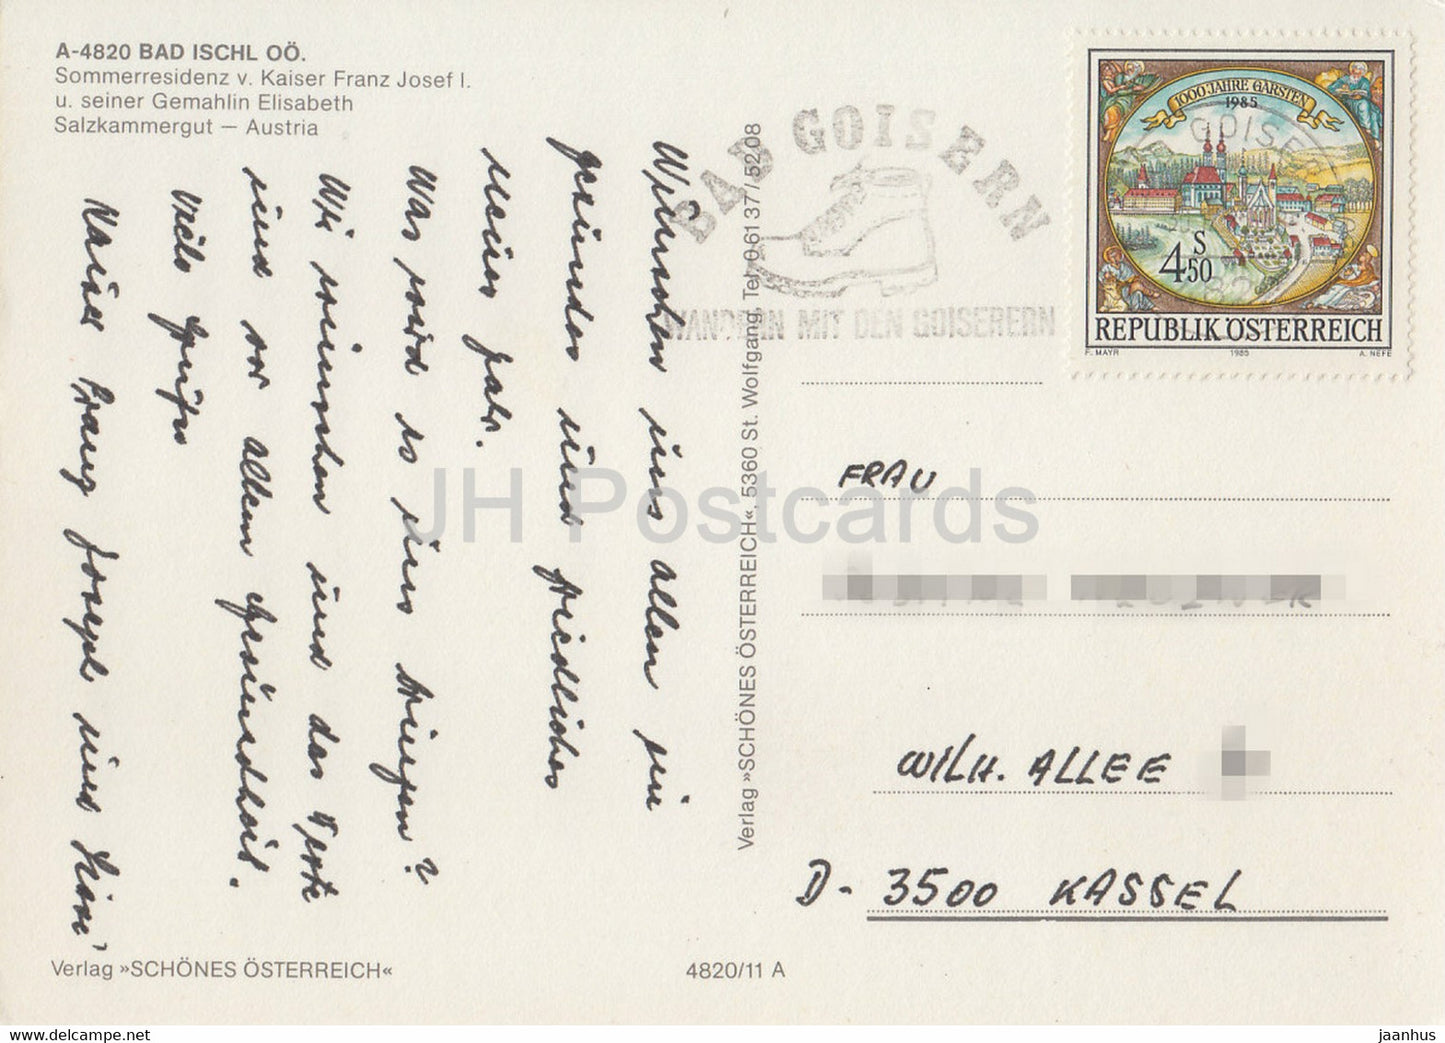 A-4820 BAD ISCHL OÖ.
Sommerresidenz v. Kaiser Franz Josef I.
u. seiner Gemahlin Elisabeth
Salzkammergut – Austria
Wünschen uns allen ein
gesundes und friedliches
neues Jahr.
Was wird es uns bringen?
Wir wünschen und das Beste
und vor allem Gesundheit.
Viele Grüße
Kaiser Franz Joseph und
Verlag »SCHÖNES ÖSTERREICH«
4820/11 A
Verlag »SCHÖNES ÖSTERREICH«. 5360 St. Wolfgang, Tel. 0 61 37 / 52 08
BAD GOISERN
WANDERN MIT DEN GOISERERN
1000 JAHRE GARSTEN
1985
GOISER
S
4.50
REPUBLIK ÖSTERREICH
F. MAYR 1985 A. NEFE
FRAU
WILH. ALLEE
D- 3500 KASSEL
JH Postcards
www.delcampe.net
jaanhus